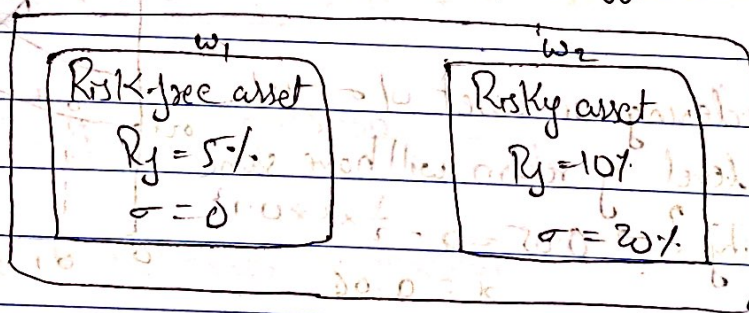 w₁
Risk-free asset
Rf = 5%.
σ = 0
w₂
Risky asset
Rf = 10%
σ = 20%.